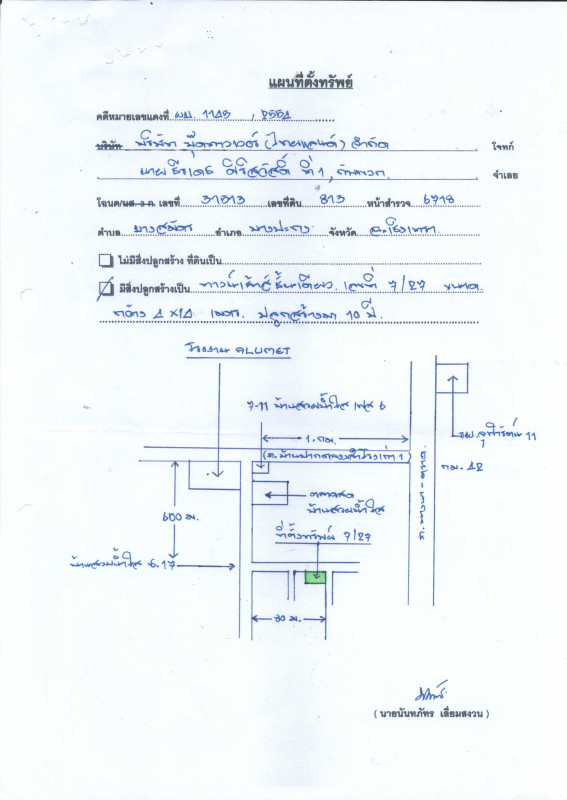 แผนที่ตั้งทรัพย์
คดีหมายเลขแดงที่ ผบ. 1145 / 2551
บริษัท บริษัท (ไทยแลนด์) จำกัด โจทก์
นาย ที่ 1, กับพวก จำเลย
โฉนด/นส. 3 ก. เลขที่ 31313 เลขที่ดิน 813 หน้าสำรวจ 6718
ตำบล บางสมัคร อำเภอ บางปะกง จังหวัด ฉะเชิงเทรา
ไม่มีสิ่งปลูกสร้าง ที่ดินเป็น
มีสิ่งปลูกสร้างเป็น ทาวน์เฮ้าส์ชั้นเดียว เลขที่ 7/27 ขนาด
กว้าง 4 x 14 เมตร. ปลูกสร้างมา 10 ปี.
โรงงาน ALUMET
7-11 บ้านสวยน้ำใส เฟส 6
1. กม.
(ถ.บ้านปากคลองสำโรงเก่า 1)
รพ.จุฬารัตน์ 11
กม. 42
ตลาดสด
บ้านสวยน้ำใส
600 ม.
ที่ตั้งทรัพย์ 7/27
บ้านสวยน้ำใส ซ.17
80 ม.
ถ. บางนา - ตราด.
( นายนันทภัทร เลี่ยมสงวน )